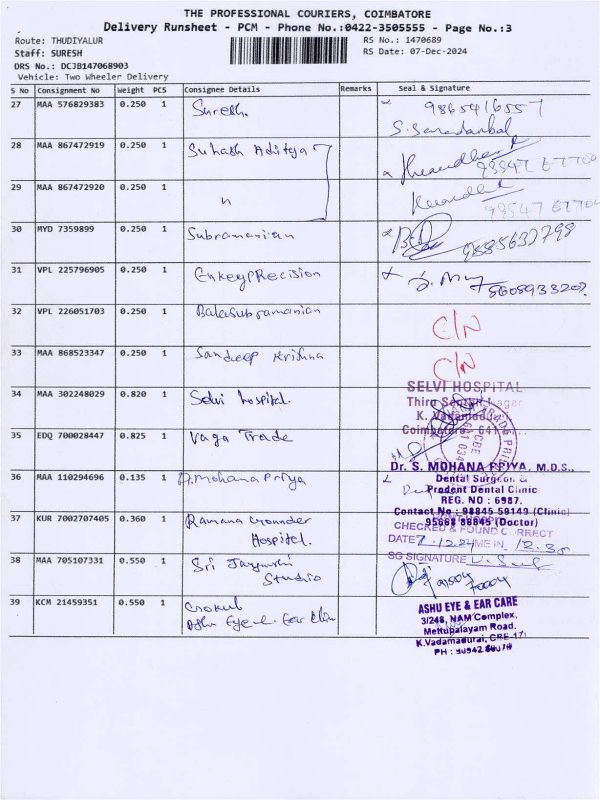 THE PROFESSIONAL COURIERS, COIMBATORE
Delivery Runsheet - PCM - Phone No.:0422-3505555 - Page No.:3
Route: THUDIYALUR
Staff: SURESH
DRS No.: DCJB147068903
Vehicle: Two Wheeler Delivery
RS No.: 1470689
RS Date: 07-Dec-2024
S No Consignment No Weight PCS Consignee Details Remarks Seal & Signature
27 MAA 576829383 0.250 1 Suresh. 9865416557
28 MAA 867472919 0.250 1 Suhash Aditya 98947 67700
29 MAA 867472920 0.250 1 " 98547 67700
30 MYD 7359899 0.250 1 Subramanian
31 VPL 225796905 0.250 1 EnkeyPRecision
32 VPL 226051703 0.250 1 Balasubramanian C/N
33 MAA 868523347 0.250 1 Sandeep Krishna C/N
34 MAA 302248029 0.820 1 Selvi hospital.
SELVI HOSPITAL
35 EDQ 700028447 0.825 1 Vaga Trade
36 MAA 110294696 0.135 1 D.MohanaPriya
Dr. S. MOHANA PRIYA, M.D.S.,
Dental Surgeon &
Prodent Dental Clinic
REG. NO : 6987.
Contact No : 98845 59149 (Clinic)
95668 88845 (Doctor)
37 KUR 7002707405 0.360 1 Ramana Gounder
Hospital.
CHECKED & FOUND CORRECT
DATE 7.12.24 TIME IN 12.30
SG SIGNATURE
38 MAA 705107331 0.550 1 Sri Jaswin
Studio
39 KCM 21459351 0.550 1 Gokul
Ashu Eye & Ear Clin
ASHU EYE & EAR CARE
3/248, NAM Complex,
Mettupalayam Road.
K.Vadamadurai, CBE-17